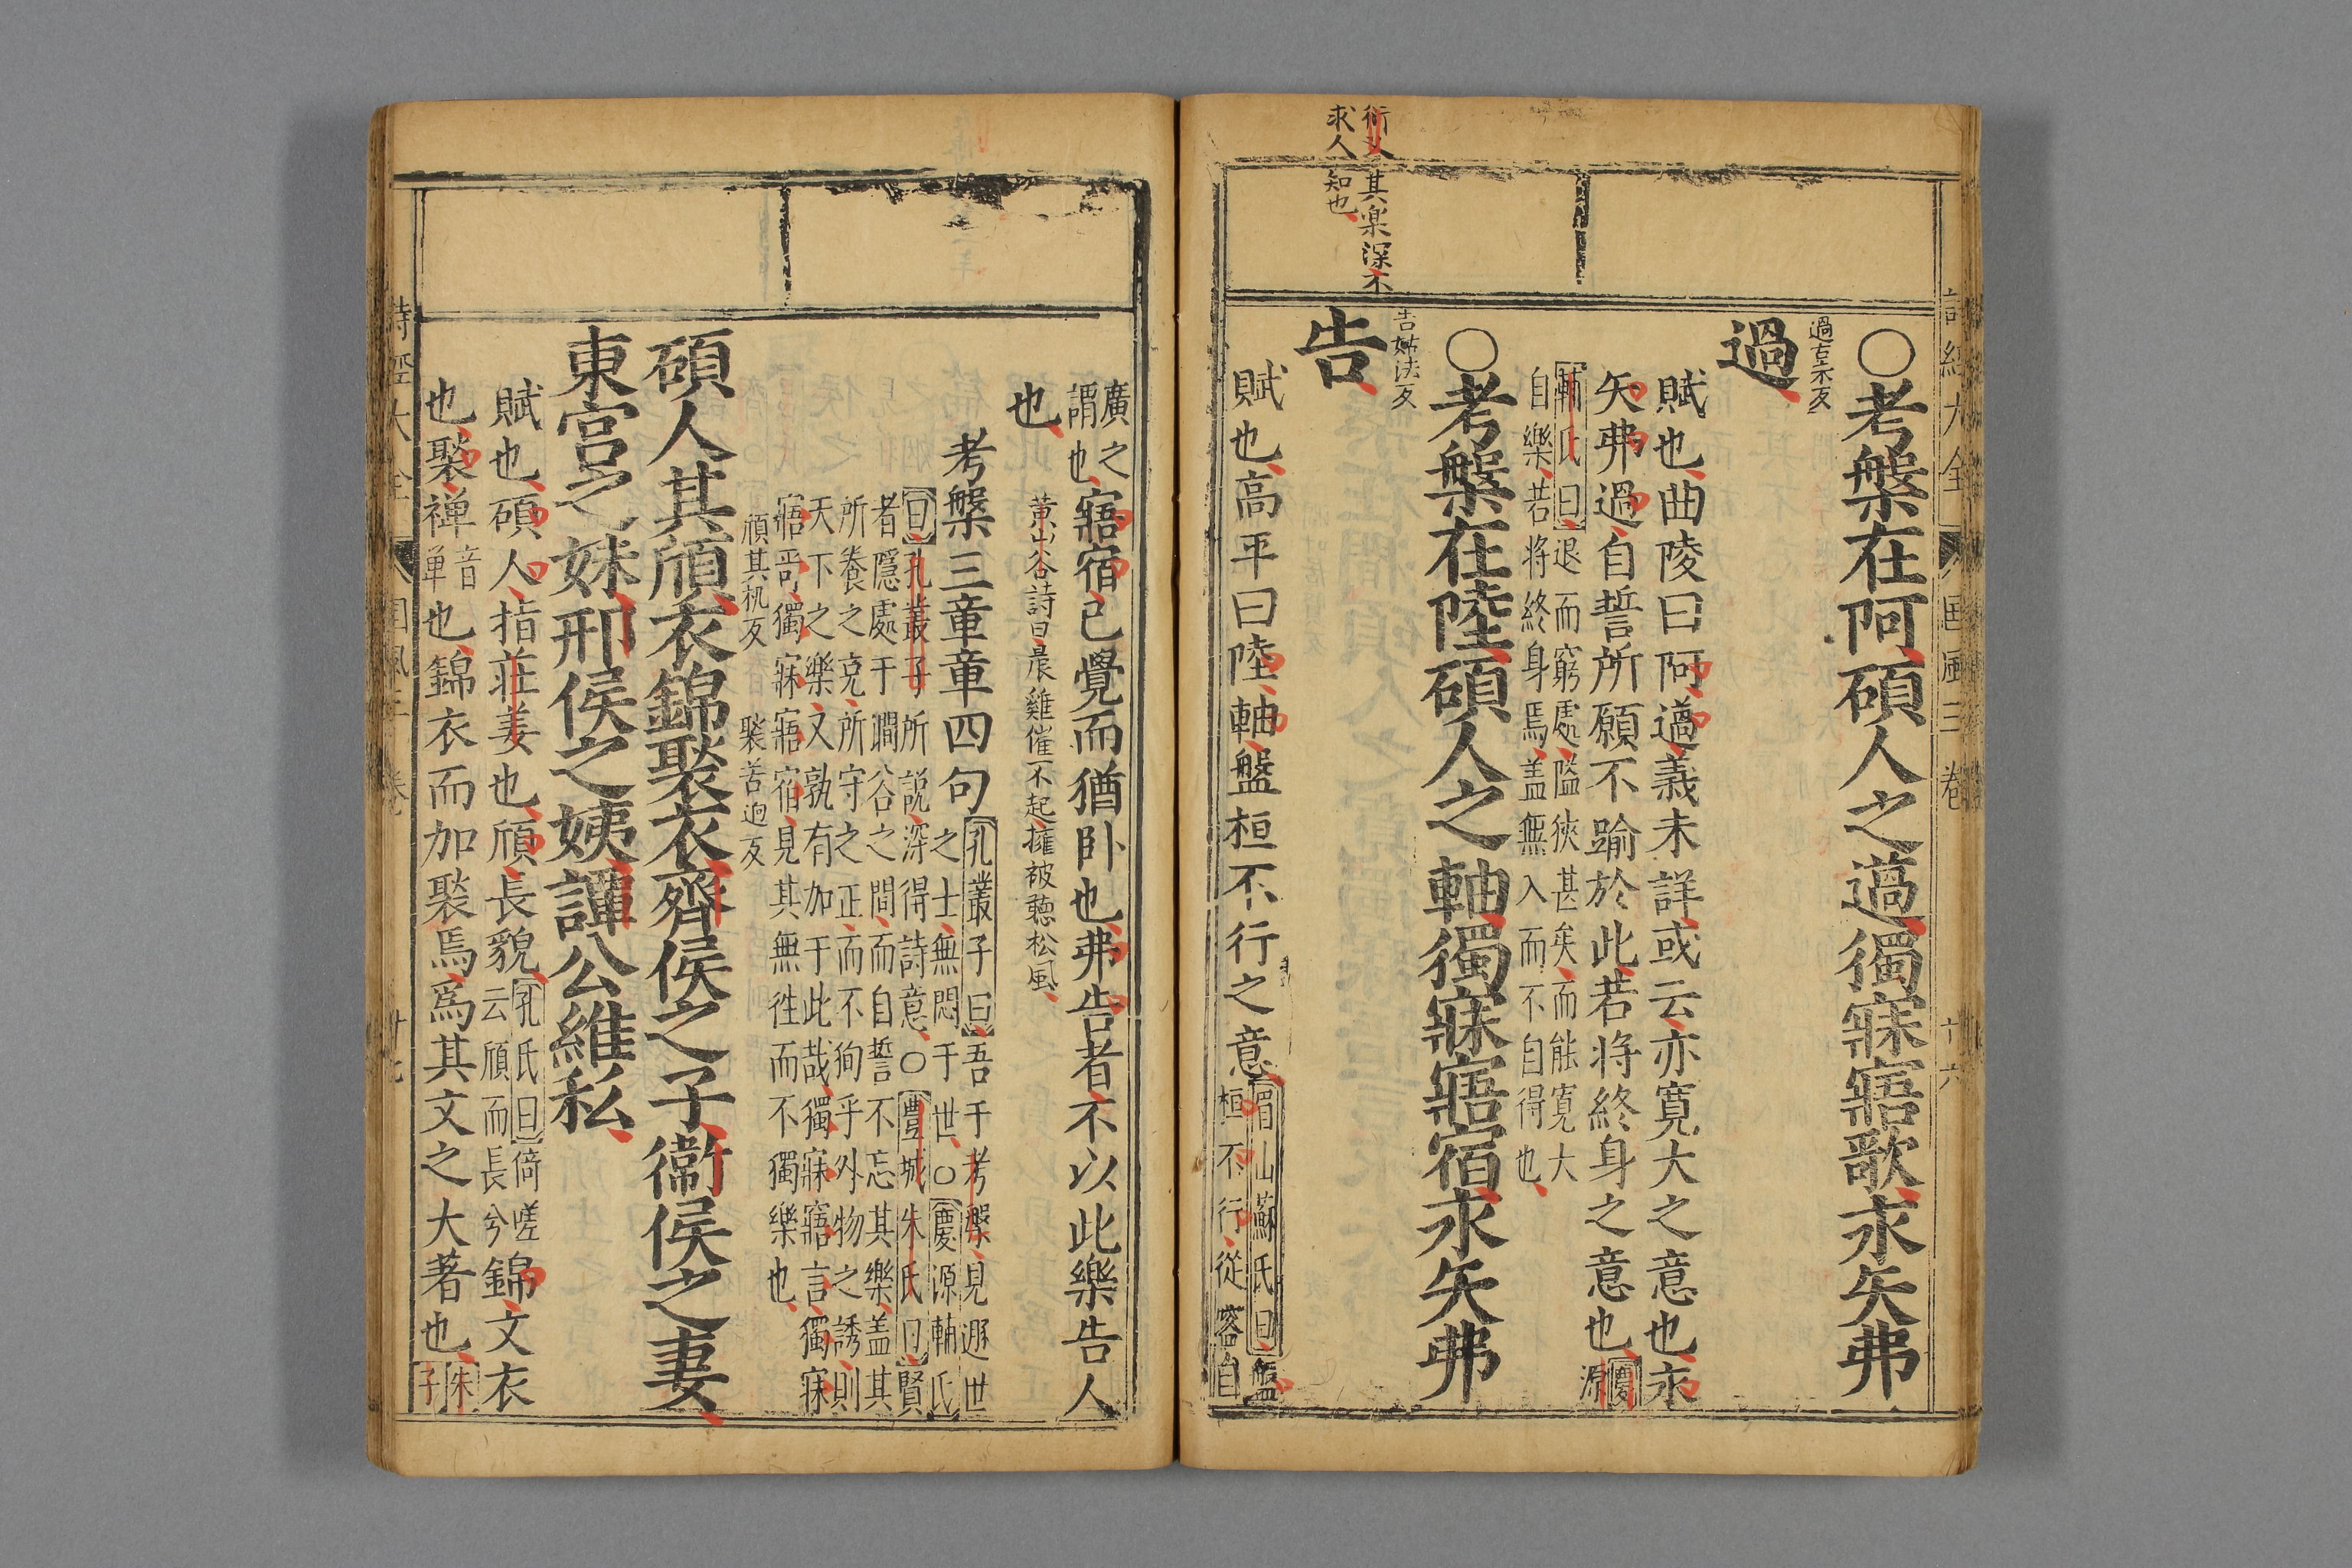 詩經大全 國風三卷 廿六
○考槃在阿碩人之薖獨寐寤歌永矢弗
過古禾反
過
賦也曲陵曰阿薖義未詳或云亦寬大之意也永
矢弗過自誓所願不踰於此若將終身之意也慶源
輔氏曰退而窮處隘狹甚矣而能寬大
自樂若將終身焉盖無入而不自得也
○考槃在陸碩人之軸獨寐寤宿永矢弗
告姑沃反
告
衍义其楽深不
求人知也
賦也高平曰陸軸盤桓不行之意
眉山蘇氏曰盤
桓不行從容自
廣之
謂也寤宿已覺而猶卧也弗告者不以此樂告人
黄山谷詩曰晨雞催不起擁被聽松風
也
考槃三章章四句
孔叢子曰吾于考槃見遯世
之士無悶于世○慶源輔氏
曰孔叢子所說深得詩意○豊城朱氏曰賢
者隱處于澗谷之間而自誓不忘其樂盖其
所養之充所守之正而不徇乎外物之誘則
天下之樂又孰有加于此哉獨寐寤言獨寐
寤歌獨寐寤宿見其無徃而不獨樂也
頎其机反 褧苦迥反
碩人其頎衣錦褧衣齊侯之子衞侯之妻
東宮之妹邢侯之姨譚公維私
賦也碩人指莊姜也頎長貌
孔氏曰猗嗟
云頎而長兮
錦文衣
也褧襌音単也錦衣而加褧焉爲其文之大著也朱子
詩經大全 國風三卷 廿七